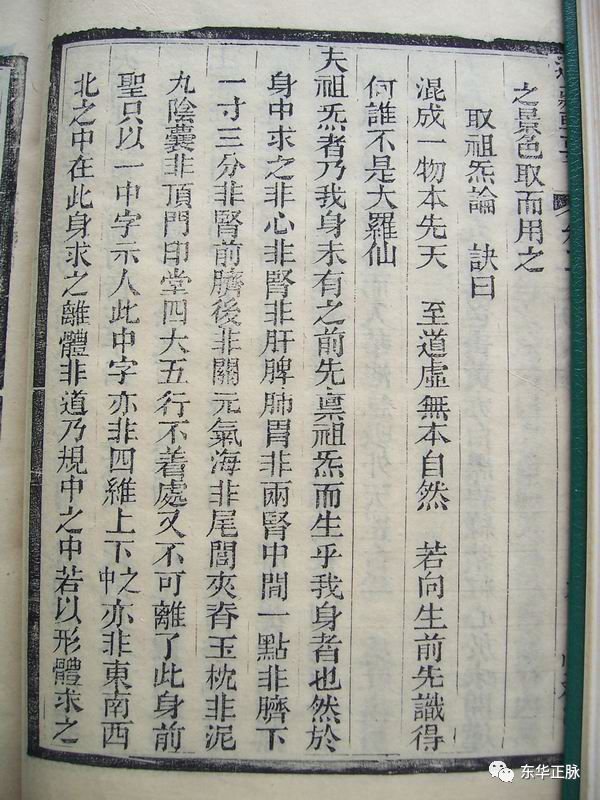 之景色取而用之
取祖炁論 訣曰
混成一物本先天 至道虛無本自然 若向生前先識得
何誰不是大羅仙
夫祖炁者乃我身未有之前先禀祖炁而生乎我身者也然於
身中求之非心非腎非肝脾肺胃非兩腎中間一點非臍下
一寸三分非腎前臍後非關元氣海非尾閭夾脊玉枕非泥
丸陰囊非頂門印堂四大五行不着處又不可離了此身前
聖只以一中字示人此中字亦非四維上下之中亦非東南西
北之中在此身求之離體非道乃規中之中若以形體求之
东华正脉